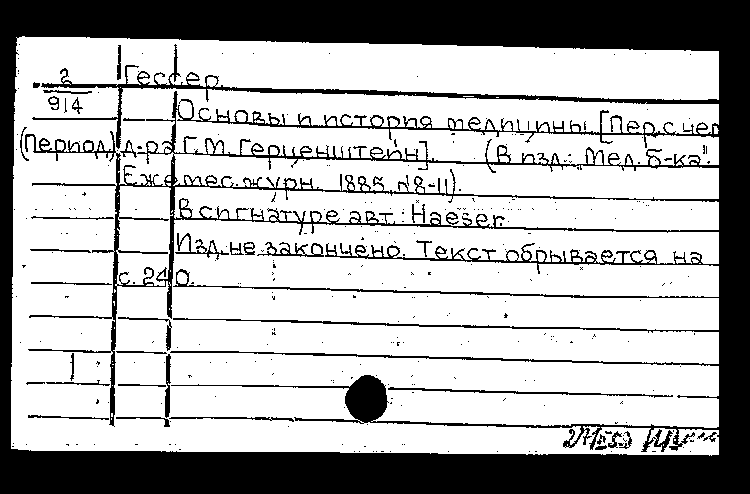 2 Гессер
914 Основы и история медицины. [Пер. с нем.
(Период.) д-ра Г.М. Герценштейн]. (В изд.: „Мед. б-ка".
Ежемес. журн. 1885, №8-11).
В сигнатуре авт.: Haeser.
Изд. не закончено. Текст обрывается на
с. 240.
1